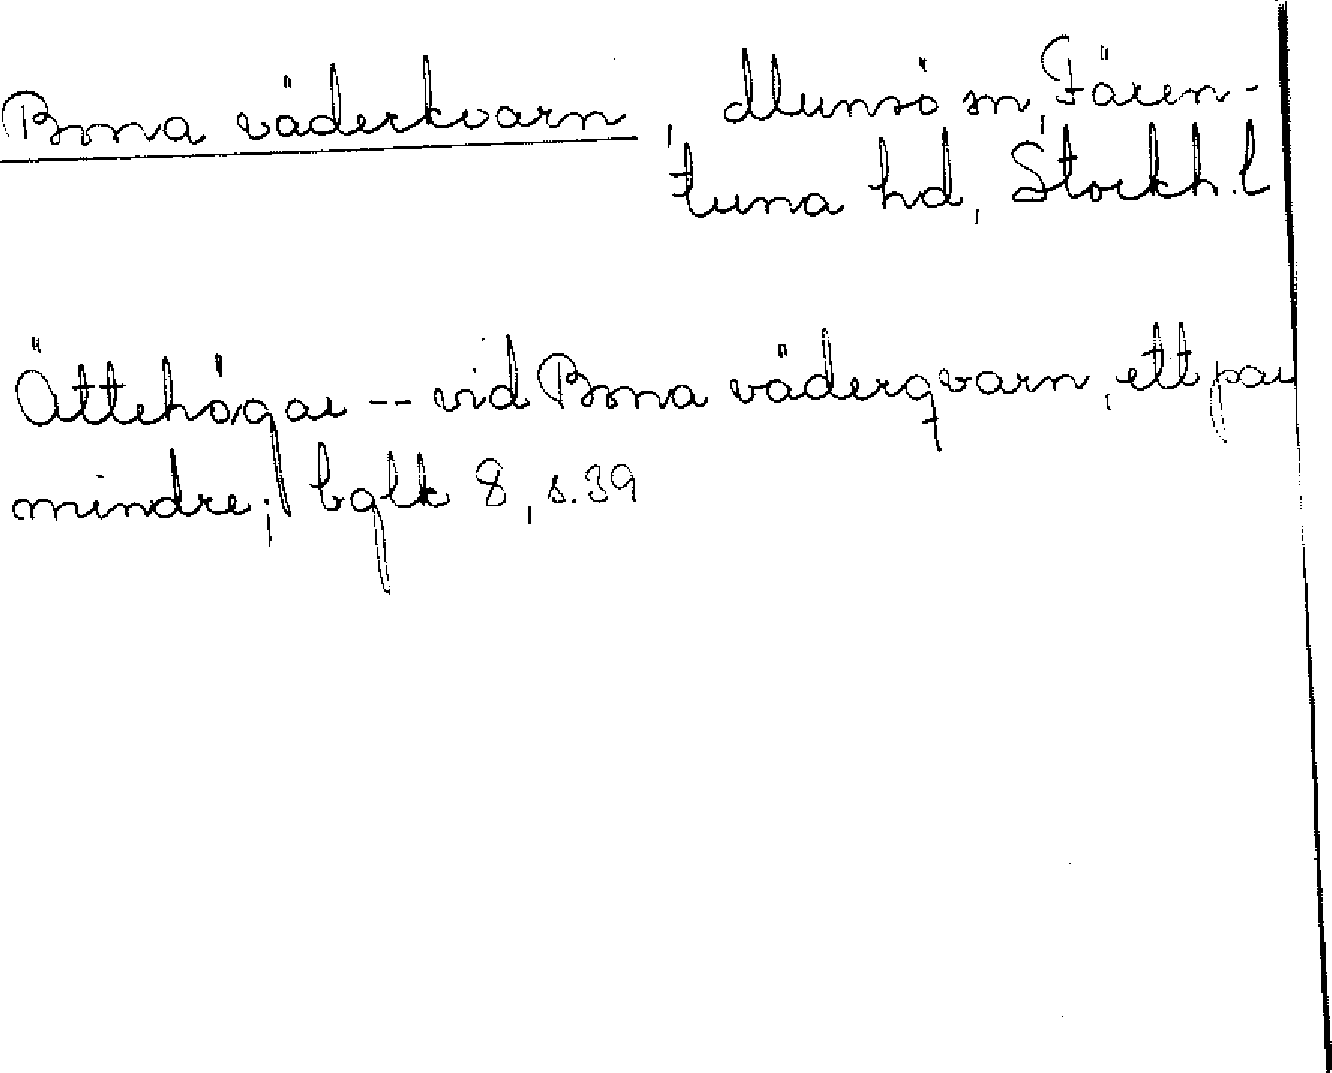 Bona väderkvarn, Munsö sn, Fären-
tuna hd, Stockh. l
Ättehögar -- vid Bona väderqvarn, ett par
mindre; bglk 8, s. 39